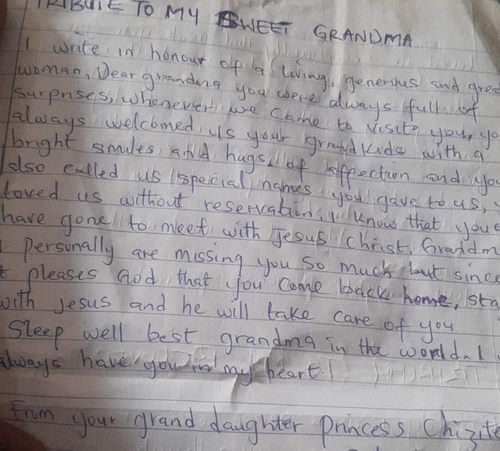 TRIBUTE TO MY SWEET GRANDMA
I write in honour of a living, generous and grea
woman, Dear grandma you were always full of
surprises, whenever we came to visite you, yo
always welcomed us your grandkids with a
bright smiles and hugs of affection and you
also called us special names you gave to us,
loved us without reservation, I know that you
have gone to meet with Jesus Christ. Grandm
I personally are missing you so much but since
it pleases God that you come back home, sta
with Jesus and he will take care of you
Sleep well best grandma in the world. I
always have you in my heart!
From your grand daughter Princess Chizite